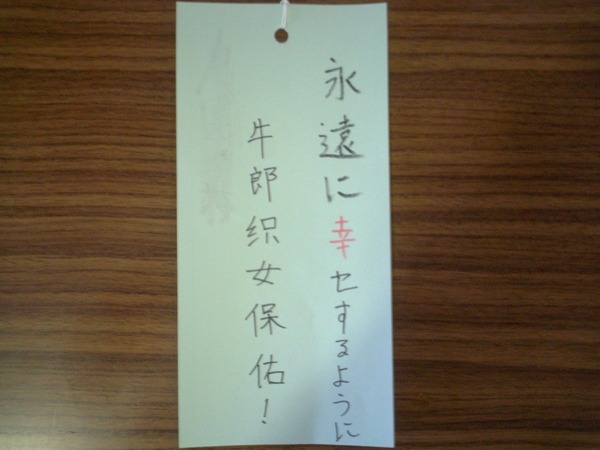 永遠に幸セするように
牛郎织女保佑！